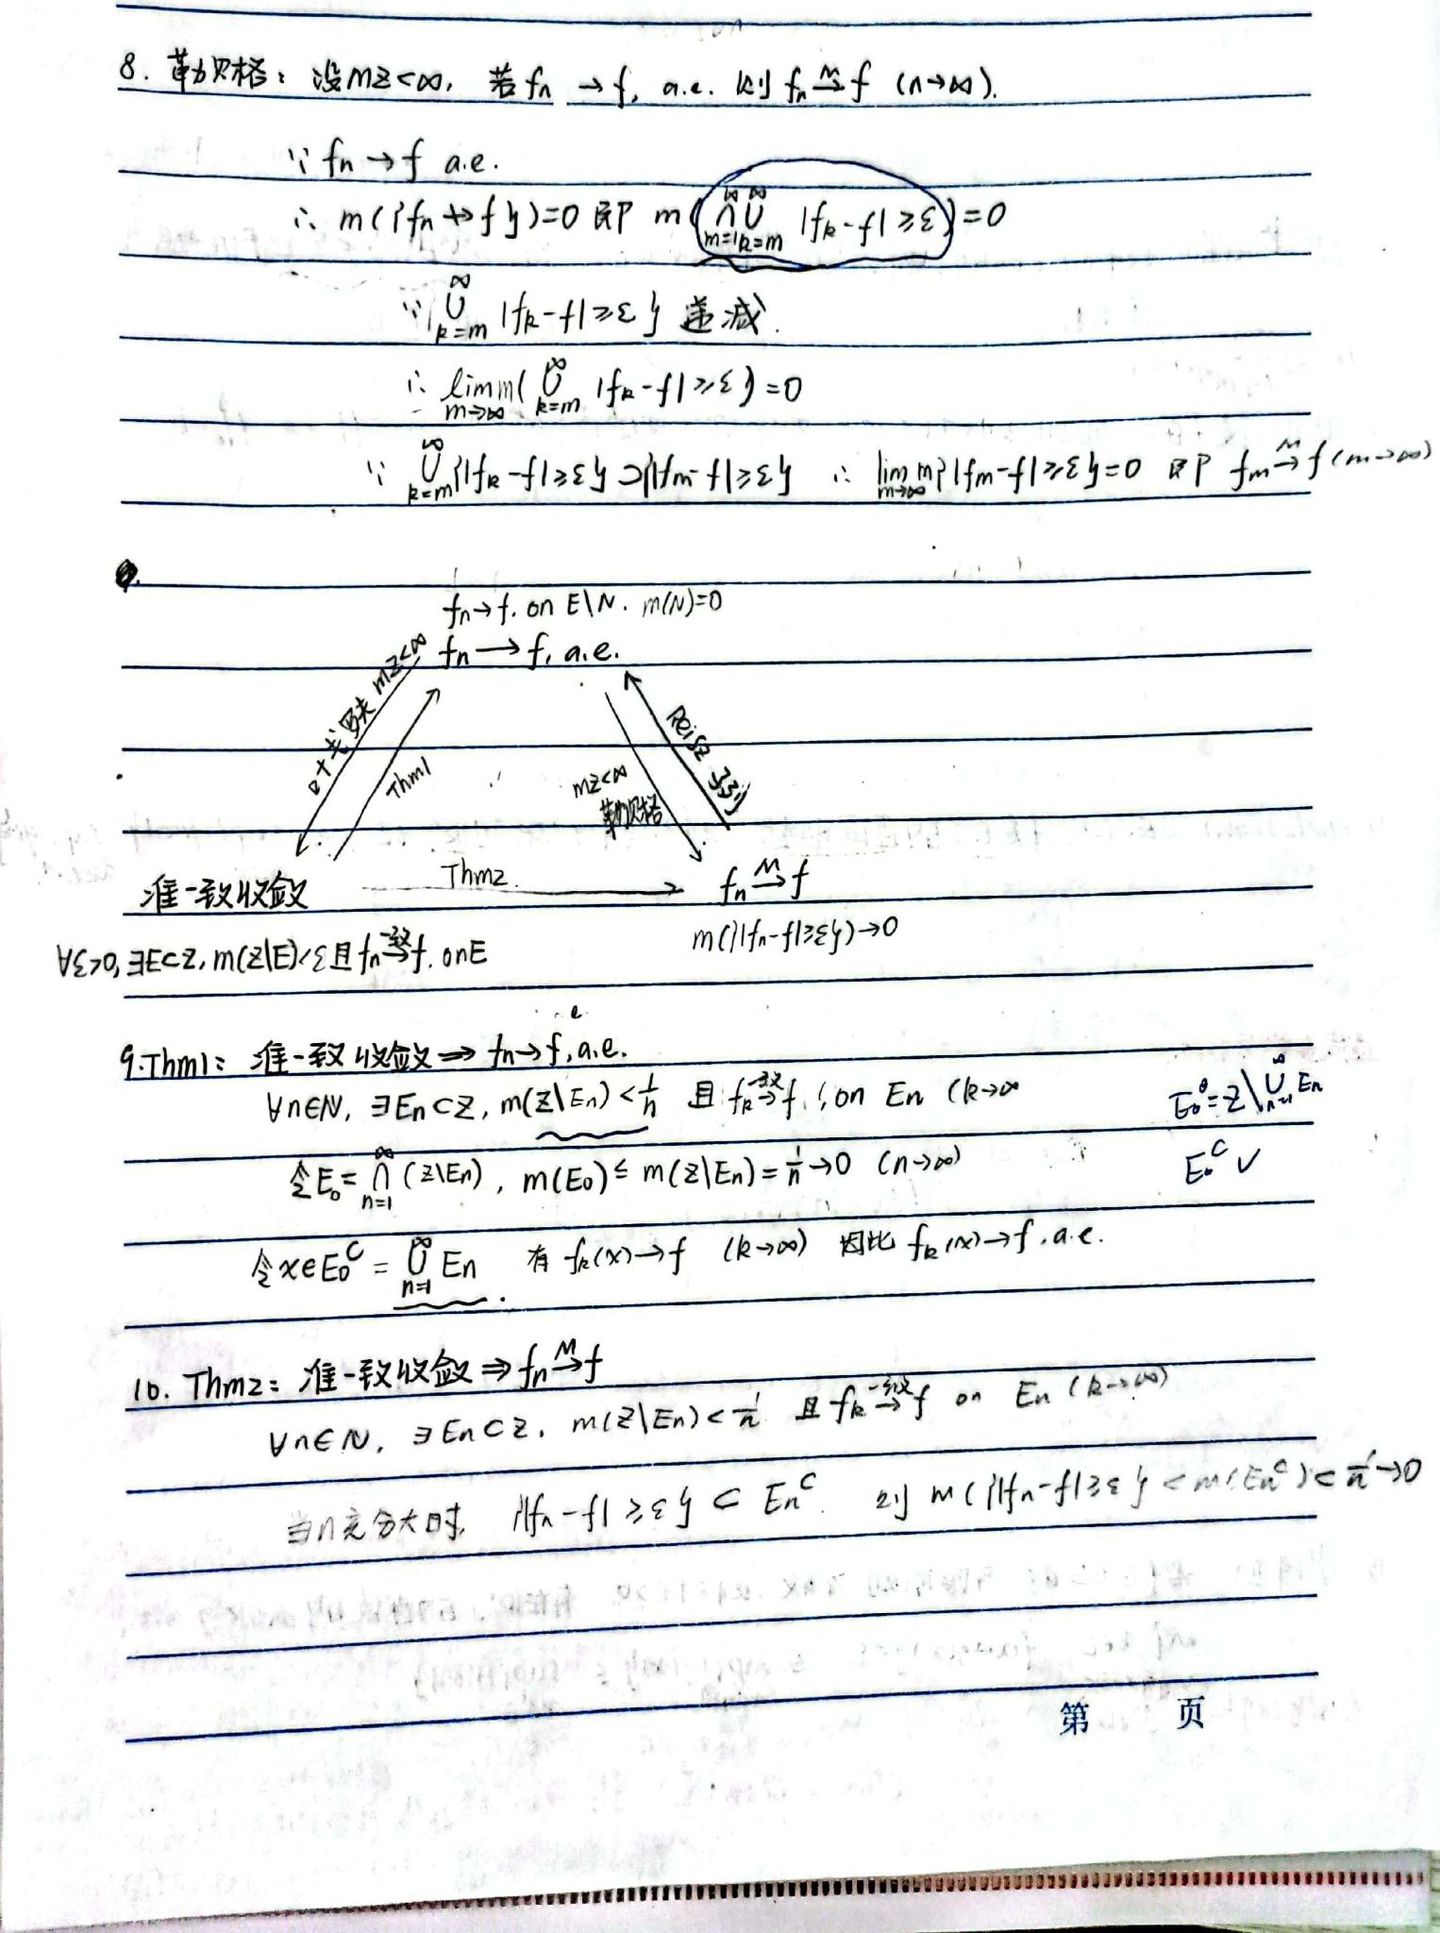 8. 勒贝格：设mZ<∞, 若fn → f, a.e. 则 fn →ᴹ f (n→∞).
∵ fn → f a.e.
∴ m({fn ↛ f})=0 即 m(⋂_{m=1}^∞ ⋃_{k=m}^∞ |fk-f|≥ε)=0
∵ {⋃_{k=m}^∞ |fk-f|≥ε} 递减.
∴ lim_{m→∞} m(⋃_{k=m}^∞ |fk-f|≥ε)=0
∵ ⋃_{k=m}^∞ {|fk-f|≥ε}⊃{|fm-f|≥ε} ∴ lim_{m→∞} m{|fm-f|≥ε}=0 即 fm →ᴹ f (m→∞)
fn→f. on E\N. m(N)=0
fn → f, a.e.
叶戈罗夫 mZ<∞
Thm1
mZ<∞
勒贝格
Reisz 子列
准一致收敛
Thm2.
fn →ᴹ f
m({|fn-f|≥ε})→0
∀ε>0, ∃E⊂Z, m(Z\E)<ε且 fn →一致 f. on E
9.Thm1: 准一致收敛 ⇒ fn→f, a.e.
∀n∈N, ∃En⊂Z, m(Z\En)<1/n 且 fk →一致 f, on En (k→∞
E0=Z\⋃_{n=1}^∞ En
令E0=⋂_{n=1}^∞ (Z\En), m(E0)≤ m(Z\En)=1/n→0 (n→∞)
E0ᶜ ✓
令x∈E0ᶜ = ⋃_{n=1}^∞ En 有 fk(x)→f (k→∞) 因此 fk(x)→f, a.e.
10. Thm2: 准一致收敛 ⇒ fn →ᴹ f
∀n∈N, ∃En⊂Z, m(Z\En)<1/n 且 fk →一致 f on En (k→∞)
当n充分大时, {|fn-f|≥ε} ⊂ Enᶜ. 则 m({|fn-f|≥ε} < m(Enᶜ)<1/n→0
第 页